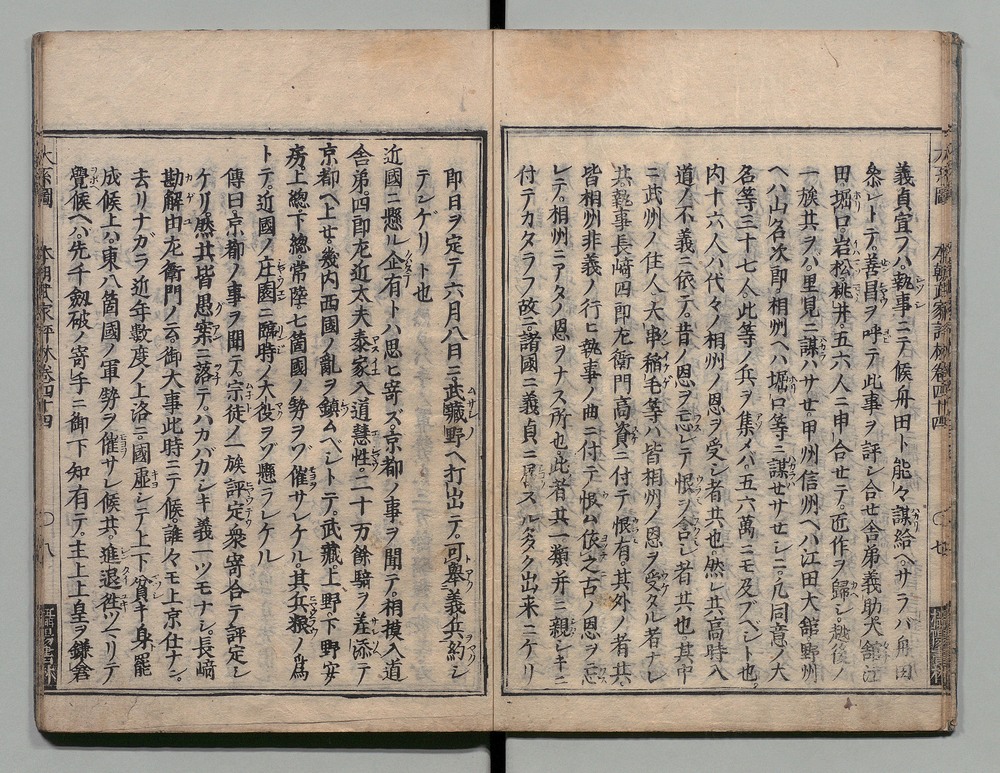 義貞宜フハ執事ニテ候舟田ト能々謀給ヘサラバ舟田
参レトテ善昌ヲ呼テ此事ヲ評シ合せ舎弟義助大舘江
田堀口岩松桃井五六人ニ申シ合せテ匠作ヲ歸シ越後ノ
一族共ヲハ里見ニ謀ハサせ甲州信州ヘハ江田大舘野州
ヘハ山名次郎相州ヘハ堀口等ニ謀せサせシニ凡同意ノ大
名等三十七人此等ノ兵ヲ集メバ五六萬ニモ及ブベシト也
内十六人ハ代々ノ相州ノ恩ヲ受シ者共也然レ共高時入
道ノ不義ニ依テ昔ノ恩ヲ忘レテ恨ヲ含シ者共也其中
ニ武州ノ住人大串稲毛等ハ皆相州ノ恩ヲ受タル者ナレ
共執事長﨑四郎左衛門高資ニ付テ恨有其外ノ者共
皆相州非義ノ行ヒ執事ノ曲ニ付テ恨ム依之古ノ恩ヲ忘
レテ相州ニアタノ恩ヲナス所也此者共一類并ニ親シキニ
付テカタラフ故ニ諸國ニ義貞ニスルヤタク出来ニケリ
大系圖 本朝武家評林巻四十四 〇 七
即日ヲ定テ六月八日ニ武藏野ヘ打出テ可舉義兵約シ
テンゲリト也
近國ニ懸ル企有トハ思ヒ寄ズ京都ノ事ヲ聞テ相摸入道
舎弟四郎左近太夫泰家入道慧性二十万餘騎ヲ差添テ
京都ヘ上せ畿内西國ノ亂ヲ鎮ムベシトテ武藏上野下野安
房上總下總常陸七箇國ノ勢ヲゾ催サレケル其兵粮ノ為
トテ近國ノ庄園ニ臨時ノ大役ヲゾ懸ラレケル
傳曰京都ノ事ヲ聞テ宗徒ノ一族評定衆寄合テ評定シ
ケリ然共皆愚案ニ落テハカバカシキ義一ツモナシ長﨑
勘解由左衛門ノ云御大事此時ニテ候誰々モ上京仕ナン
去リナガラ近年數度ノ上洛ニ國虚シテ上下貧キ身ニ罷
成候上ハ東八箇國ノ軍勢ヲ催サレ候共進退徃ツマリテ
覺候ヘハ先千劔破ノ寄手ニ御下知有テ主上上皇ヲ鎌倉
大系圖 本朝武家評林巻四十四 〇 八